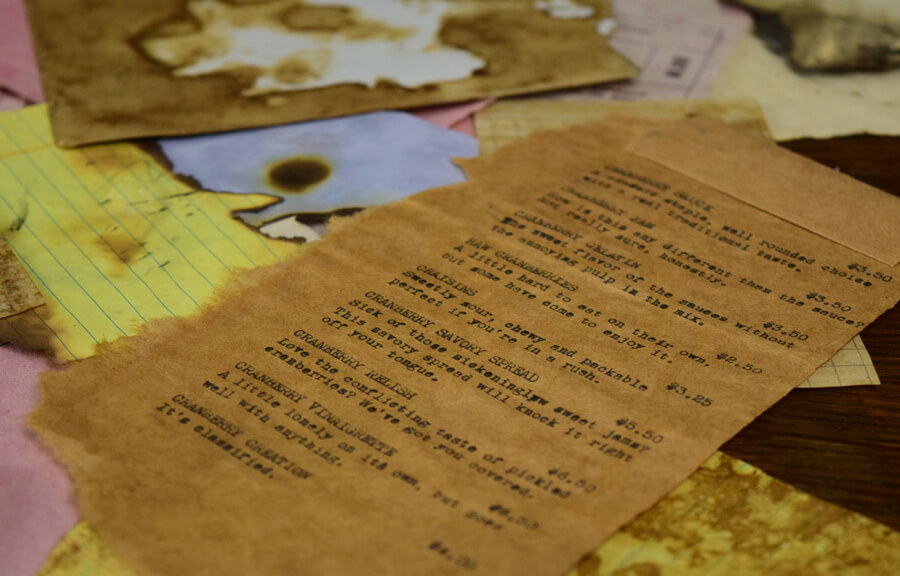 CRANBERRY SAUCE $3.50
A modern staple, well rounded choice
with a real traditional taste.
CRANBERRY JAM $3.50
How is this any different then the sauce?
Not really sure honestly.
CRANBERRY GELATIN $3.50
The sweet flavor of the sauces without
the annoying pulp in the mix.
RAW CRANBERRIES $2.50
A little hard to eat on their own,
but some have come to enjoy it.
CRAISINS $3.25
Sweetly sour, chewy and packable
perfect if you're in a rush.
CRANBERRY SAVORY SPREAD $5.50
Sick of those sickeninglyw sweet jams?
This savory spread will knock it right
off your tongue.
CRANBERRY RELISH
Love the conflicting taste of pickled
cranberries? We've got you covered.
CRANBERRY VINAIGRETTE
A little lonely on its own, but goes
well with anything.
CRANBERRY CREATION
It's classified.